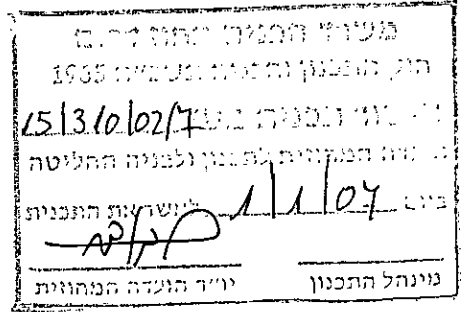 משרד הפנים מחוז דרום
חוק התכנון והבניה תשכ"ה 1965
15/3/0/02/7
הועדה המחוזית לתכנון ולבניה החליטה
ביום 1/1/04 לאשר את התכנית
מינהל התכנון יו"ר הועדה המחוזית